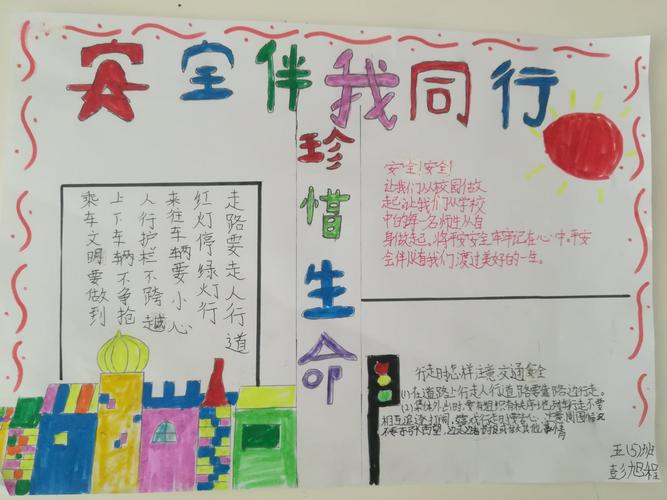 安全伴我同行
珍惜生命
走路要走人行道
红灯停绿灯行
来往车辆要小心
人行护栏不跨越
上下车辆不争抢
乘车文明要做到
安全!安全!
让我们从校园做
起,让我们从学校
中的每一名师生从自
身做起,将平安安全牢牢记在心中。平安
会伴随着我们渡过美好的一生。
行走时怎样注意交通安全
(1)在道路上行走,人行道,路要靠路边行走。
(2)集体外出时,要有组织有秩序地列队行走,不要
相互追逐打闹,嬉戏行走时要专心,注意周围情况
不要东张西望,边走边看书报或做其他事情
五(5)班
彭旭程